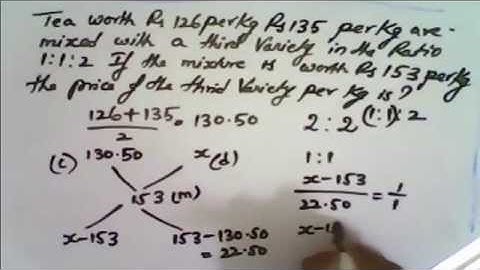 Tea worth Rs 126 per Kg Rs 135 per Kg are-
mixed with a third Variety in the Ratio
1:1:2 If the mixture is worth Rs 153 per Kg
the price of the thrid Variety per Kg is?
126+135/2 = 130.50
2 : 2 (1:1): 2
1:1
(c) 130.50 x (d)
153 (m)
x-153 153-130.50
= 22.50
x-153/22.50 = 1/1
x-1